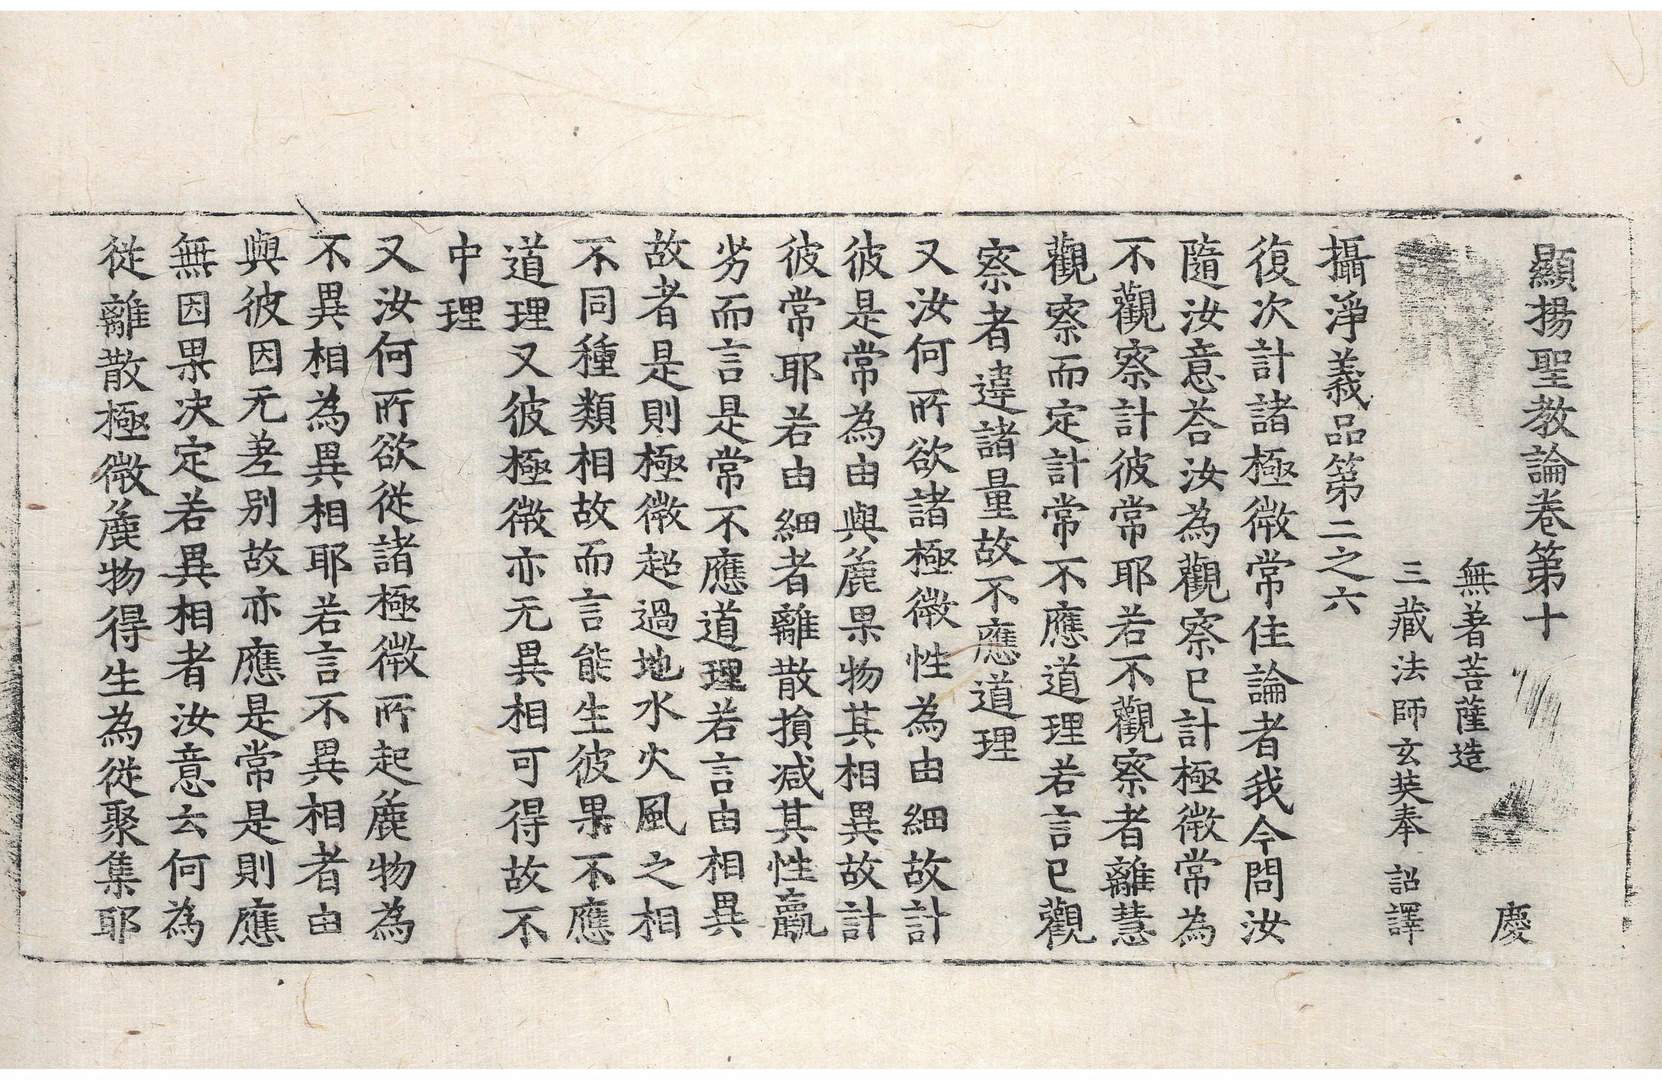 顯揚聖教論卷第十
慶
無著菩薩造
三藏法師玄奘奉 詔譯
攝淨義品第二之六
復次計諸極微常住論者我今問汝
隨汝意荅汝為觀察已計極微常為
不觀察計彼常耶若不觀察者離慧
觀察而定計常不應道理若言已觀
察者違諸量故不應道理
又汝何所欲諸極微性為由細故計
彼是常為由與麁果物其相異故計
彼常耶若由細者離散損減其性羸
劣而言是常不應道理若言由相異
故者是則極微超過地水火風之相
不同種類相故而言能生彼果不應
道理又彼極微亦无異相可得故不
中理
又汝何所欲從諸極微所起麁物為
不異相為異相耶若言不異相者由
與彼因无差別故亦應是常是則應
無因果決定若異相者汝意云何為
從離散極微麁物得生為從聚集耶